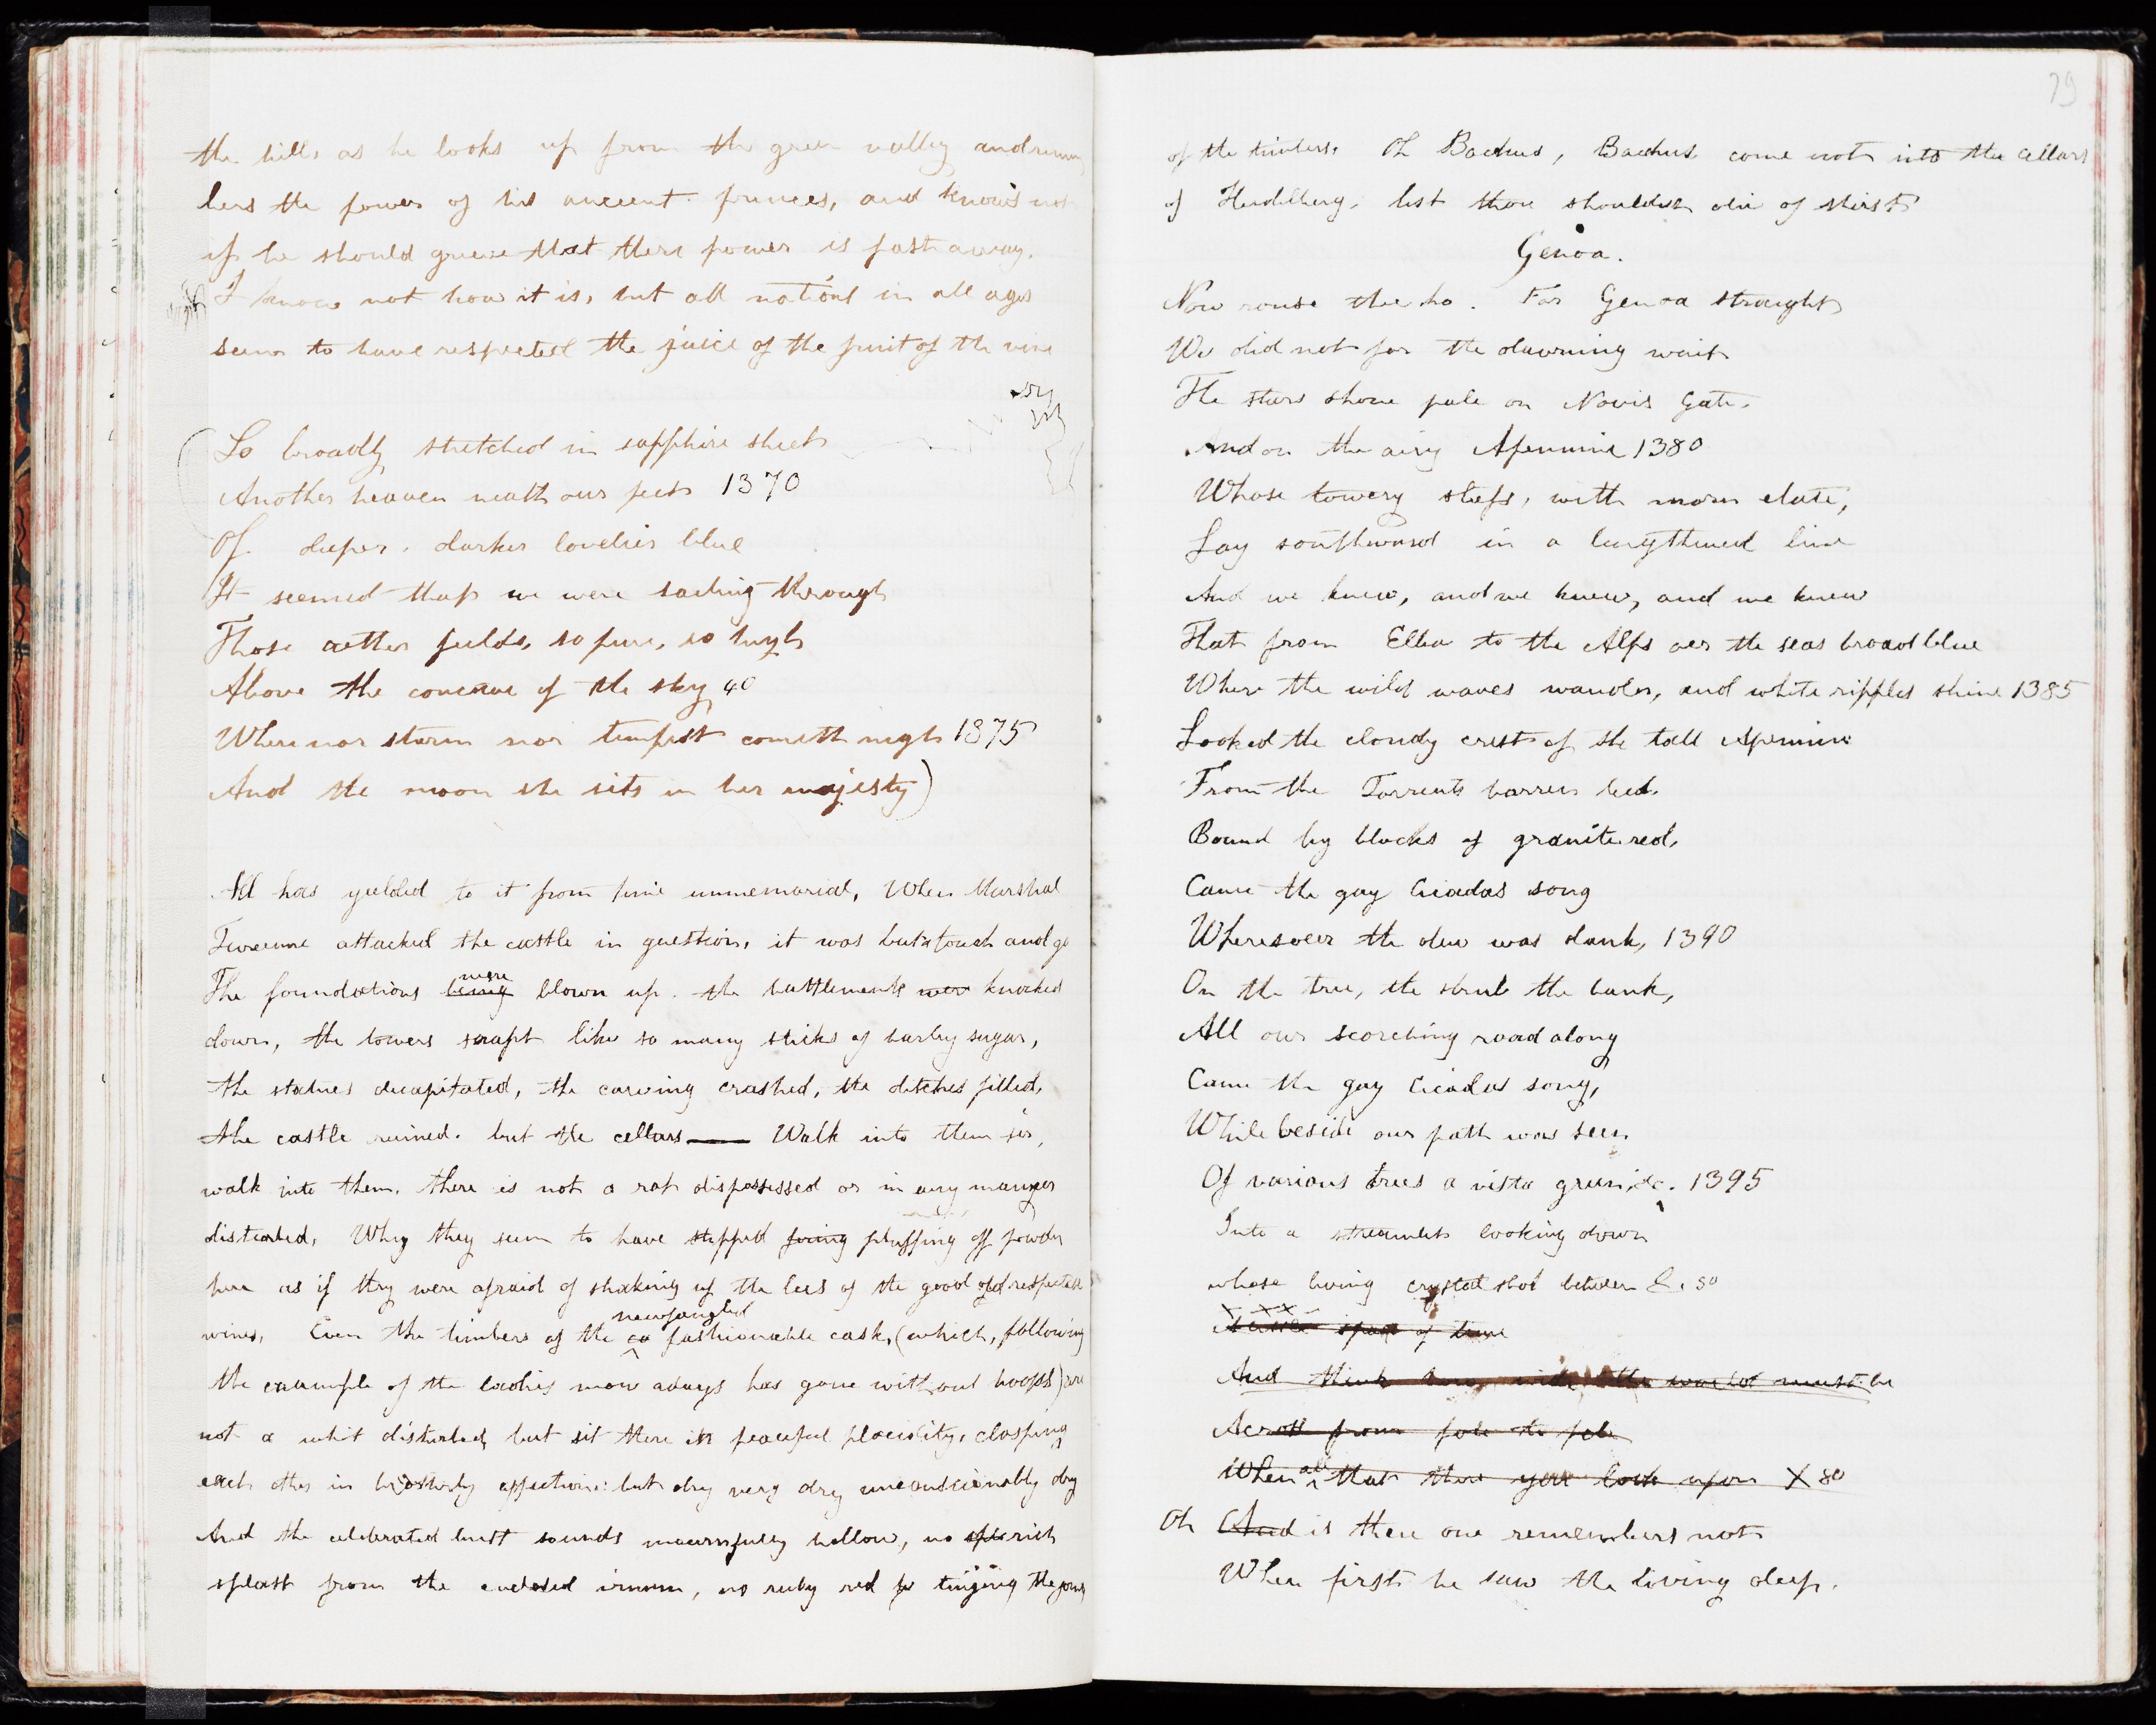 the hills as he looks up from the green valley and remem
bers the power of his ancient princes, and knows not
if he should grieve that there power is past away.
I know not how it is, but all nations in all ages
seem to have respected the juice of the fruit of the vine
So broadly stretched in sapphire sheet
Another heaven neath our feet 1370
Of deeper, darker lovelier blue
It seemed that we were sailing through
Those aether fields, so pure, so high
Above the concave of the sky 40
Where nor storm nor tempest cometh nigh 1375
And the moon she sits in her majesty)
All has yielded to it from time immemorial, When Marshal
Turenne attacked the castle in question, it was but a touch and go
The foundations being were blown up. the battlements were knocked
down, the towers snapt like so many sticks of barley sugar,
the statues decapitated, the carving crashed, the ditches filled,
the castle ruined. but the cellars—— Walk into them sir,
walk into them, there is not a rat dispossessed or in any manner
disturbed, Why they seem to have stopped firing pluffing off powder
here as if they were afraid of shaking up the lees of the good old respectable
wines, Even the timbers of the ca newfangled fashionable cask, (which, following
the example of the ladies now adays has gone without hoops) are
not a whit disturbed, but sit there in peaceful placidity, clasping
each other in brotherly affection: but dry very dry unconscionably dry
And the celebrated bust sounds mournfully hollow, no rich
splash from the enclosed, no ruby red tinging the pores
79
of the timbers. Oh Bacchus, Bacchus come not into the cellars
of Heidelberg, lest thou shouldest die of thirst
Genoa.
Now rouse thee ho. For Genoa straight
We did not for the dawning wait
The stars shone pale on Novis gate.
And on the airy Apennine 1380
Whose towery steeps, with morn elate,
Lay southward in a lengthened line
And we knew, and we knew, and we knew
That from Elba to the Alps oer the seas broad blue
Where the wild waves wander, and white ripples shine 1385
Looked the cloudy crest of the tall Apennine
From the Torrents barren bed.
Bound by blocks of granite red,
Came the gay Cicadas song
Wheresoeer the dew was dank, 1390
On the tree, the shrub the bank,
All our scorching road along
Came the gay Cicadas song,
While beside our path was seen
Of various trees a vista green, &c. 1395
Into a streamlet looking down
whose living crystal shot between &c 50
of time
And think how wide the world must be
Across from pole to pole
When all that there you look upon X 80
Oh And is there one remembers not
When first he saw the living deep.